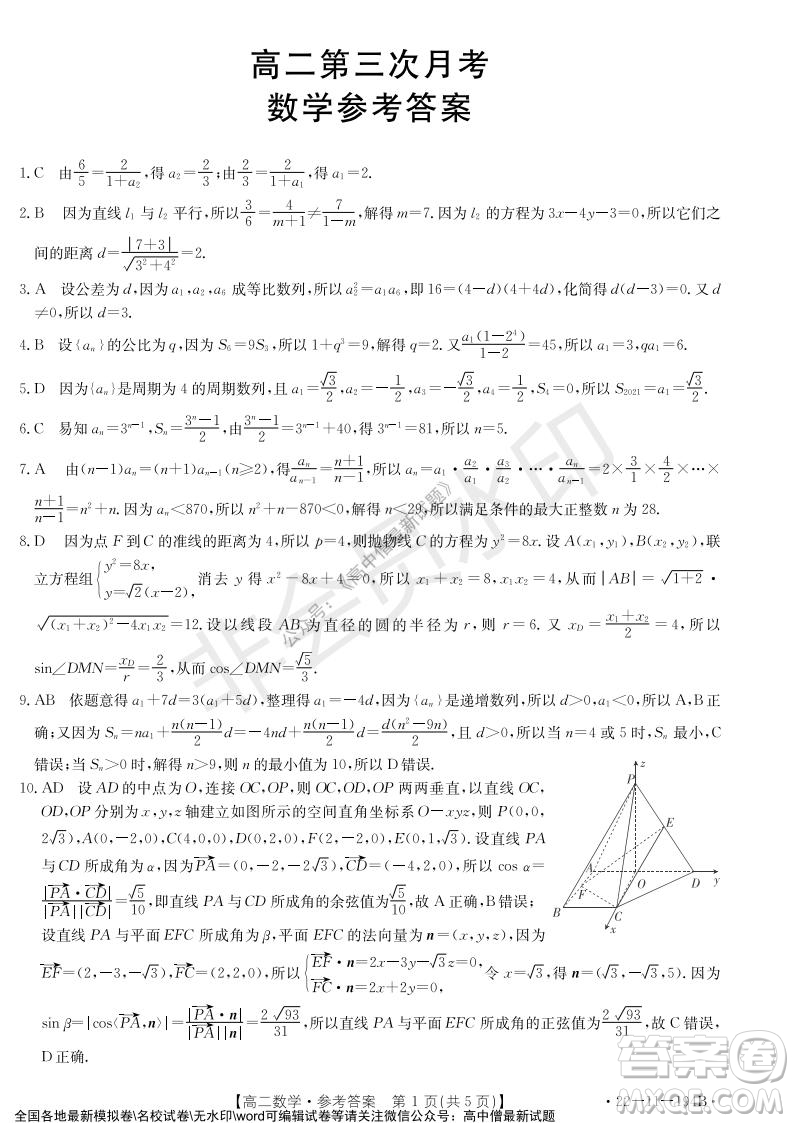 高二第三次月考
数学参考答案
1. C　由6/5=2/(1+a₂),得a₂=2/3;由2/3=2/(1+a₁),得a₁=2.
2. B　因为直线l₁与l₂平行,所以3/6=4/(m+1)≠7/(1-m),解得m=7.因为l₂的方程为3x-4y-3=0,所以它们之
间的距离d=|7+3|/√(3²+4²)=2.
3. A　设公差为d,因为a₁,a₂,a₆成等比数列,所以a₂²=a₁a₆,即16=(4-d)(4+4d),化简得d(d-3)=0.又d
≠0,所以d=3.
4. B　设{aₙ}的公比为q,因为S₆=9S₃,所以1+q³=9,解得q=2.又a₁(1-2⁴)/(1-2)=45,所以a₁=3,qa₁=6.
5. D　因为{aₙ}是周期为4的周期数列,且a₁=√3/2,a₂=-1/2,a₃=-√3/2,a₄=1/2,S₄=0,所以S₂₀₂₁=√3/2.
6. C　易知aₙ=3ⁿ⁻¹,Sₙ=(3ⁿ-1)/2,由(3ⁿ-1)/2=3ⁿ⁻¹+40,得3ⁿ⁻¹=81,所以n=5.
7. A　由(n-1)aₙ=(n+1)aₙ₋₁(n≥2),得aₙ/aₙ₋₁=(n+1)/(n-1),所以aₙ=a₁·a₂/a₁·a₃/a₂·…·aₙ/aₙ₋₁=2×3/1×4/2×…×
(n+1)/(n-1)=n²+n.因为aₙ<870,所以n²+n-870<0,解得n<29,所以满足条件的最大正整数n为28.
8. D　因为点F到C的准线的距离为4,所以p=4,则抛物线C的方程为y²=8x.设A(x₁,y₁),B(x₂,y₂),联
立方程组{y²=8x, y=√2(x-2),消去y得x²-8x+4=0,所以x₁+x₂=8,x₁x₂=4,从而|AB|=√(1+2)·
√((x₁+x₂)²-4x₁x₂)=12.设以线段AB为直径的圆的半径为r,则r=6.又x_D=(x₁+x₂)/2=4,所以
sin∠DMN=x_D/r=2/3,从而cos∠DMN=√5/3.
9. AB　依题意得a₁+7d=3(a₁+5d),整理得a₁=-4d,因为{aₙ}是递增数列,所以d>0,a₁<0,所以A,B正
确;又因为Sₙ=na₁+n(n-1)/2 d=-4nd+n(n-1)/2 d=d(n²-9n)/2,且d>0,所以当n=4或5时,Sₙ最小,C
错误;当Sₙ>0时,解得n>9,则n的最小值为10,所以D错误.
10. AD　设AD的中点为O,连接OC,OP,则OC,OD,OP两两垂直,以直线OC,
OD,OP分别为x,y,z轴建立如图所示的空间直角坐标系O-xyz,则P(0,0,
2√3),A(0,-2,0),C(4,0,0),D(0,2,0),F(2,-2,0),E(0,1,√3).设直线PA
与CD所成角为α,因为PA→=(0,-2,-2√3),CD→=(-4,2,0),所以cos α=
|PA→·CD→|/(|PA→||CD→|)=√5/10,即直线PA与CD所成角的余弦值为√5/10,故A正确,B错误;
设直线PA与平面EFC所成角为β,平面EFC的法向量为n=(x,y,z),因为
EF→=(2,-3,-√3),FC→=(2,2,0),所以{EF→·n=2x-3y-√3z=0, FC→·n=2x+2y=0,令x=√3,得n=(√3,-√3,5).因为
sin β=|cos⟨PA→,n⟩|=|PA→·n|/(|PA→||n|)=2√93/31,所以直线PA与平面EFC所成角的正弦值为2√93/31,故C错误,
D正确.
z
P
E
A
O
D
y
F
B
C
x
公众号:《高中僧最新试题》
非会员水印
【高二数学·参考答案　第1页(共5页)】
·22-11-191B·
全国各地最新模拟卷\名校试卷\无水印\word可编辑试卷等请关注微信公众号:高中僧最新试题
作业帮